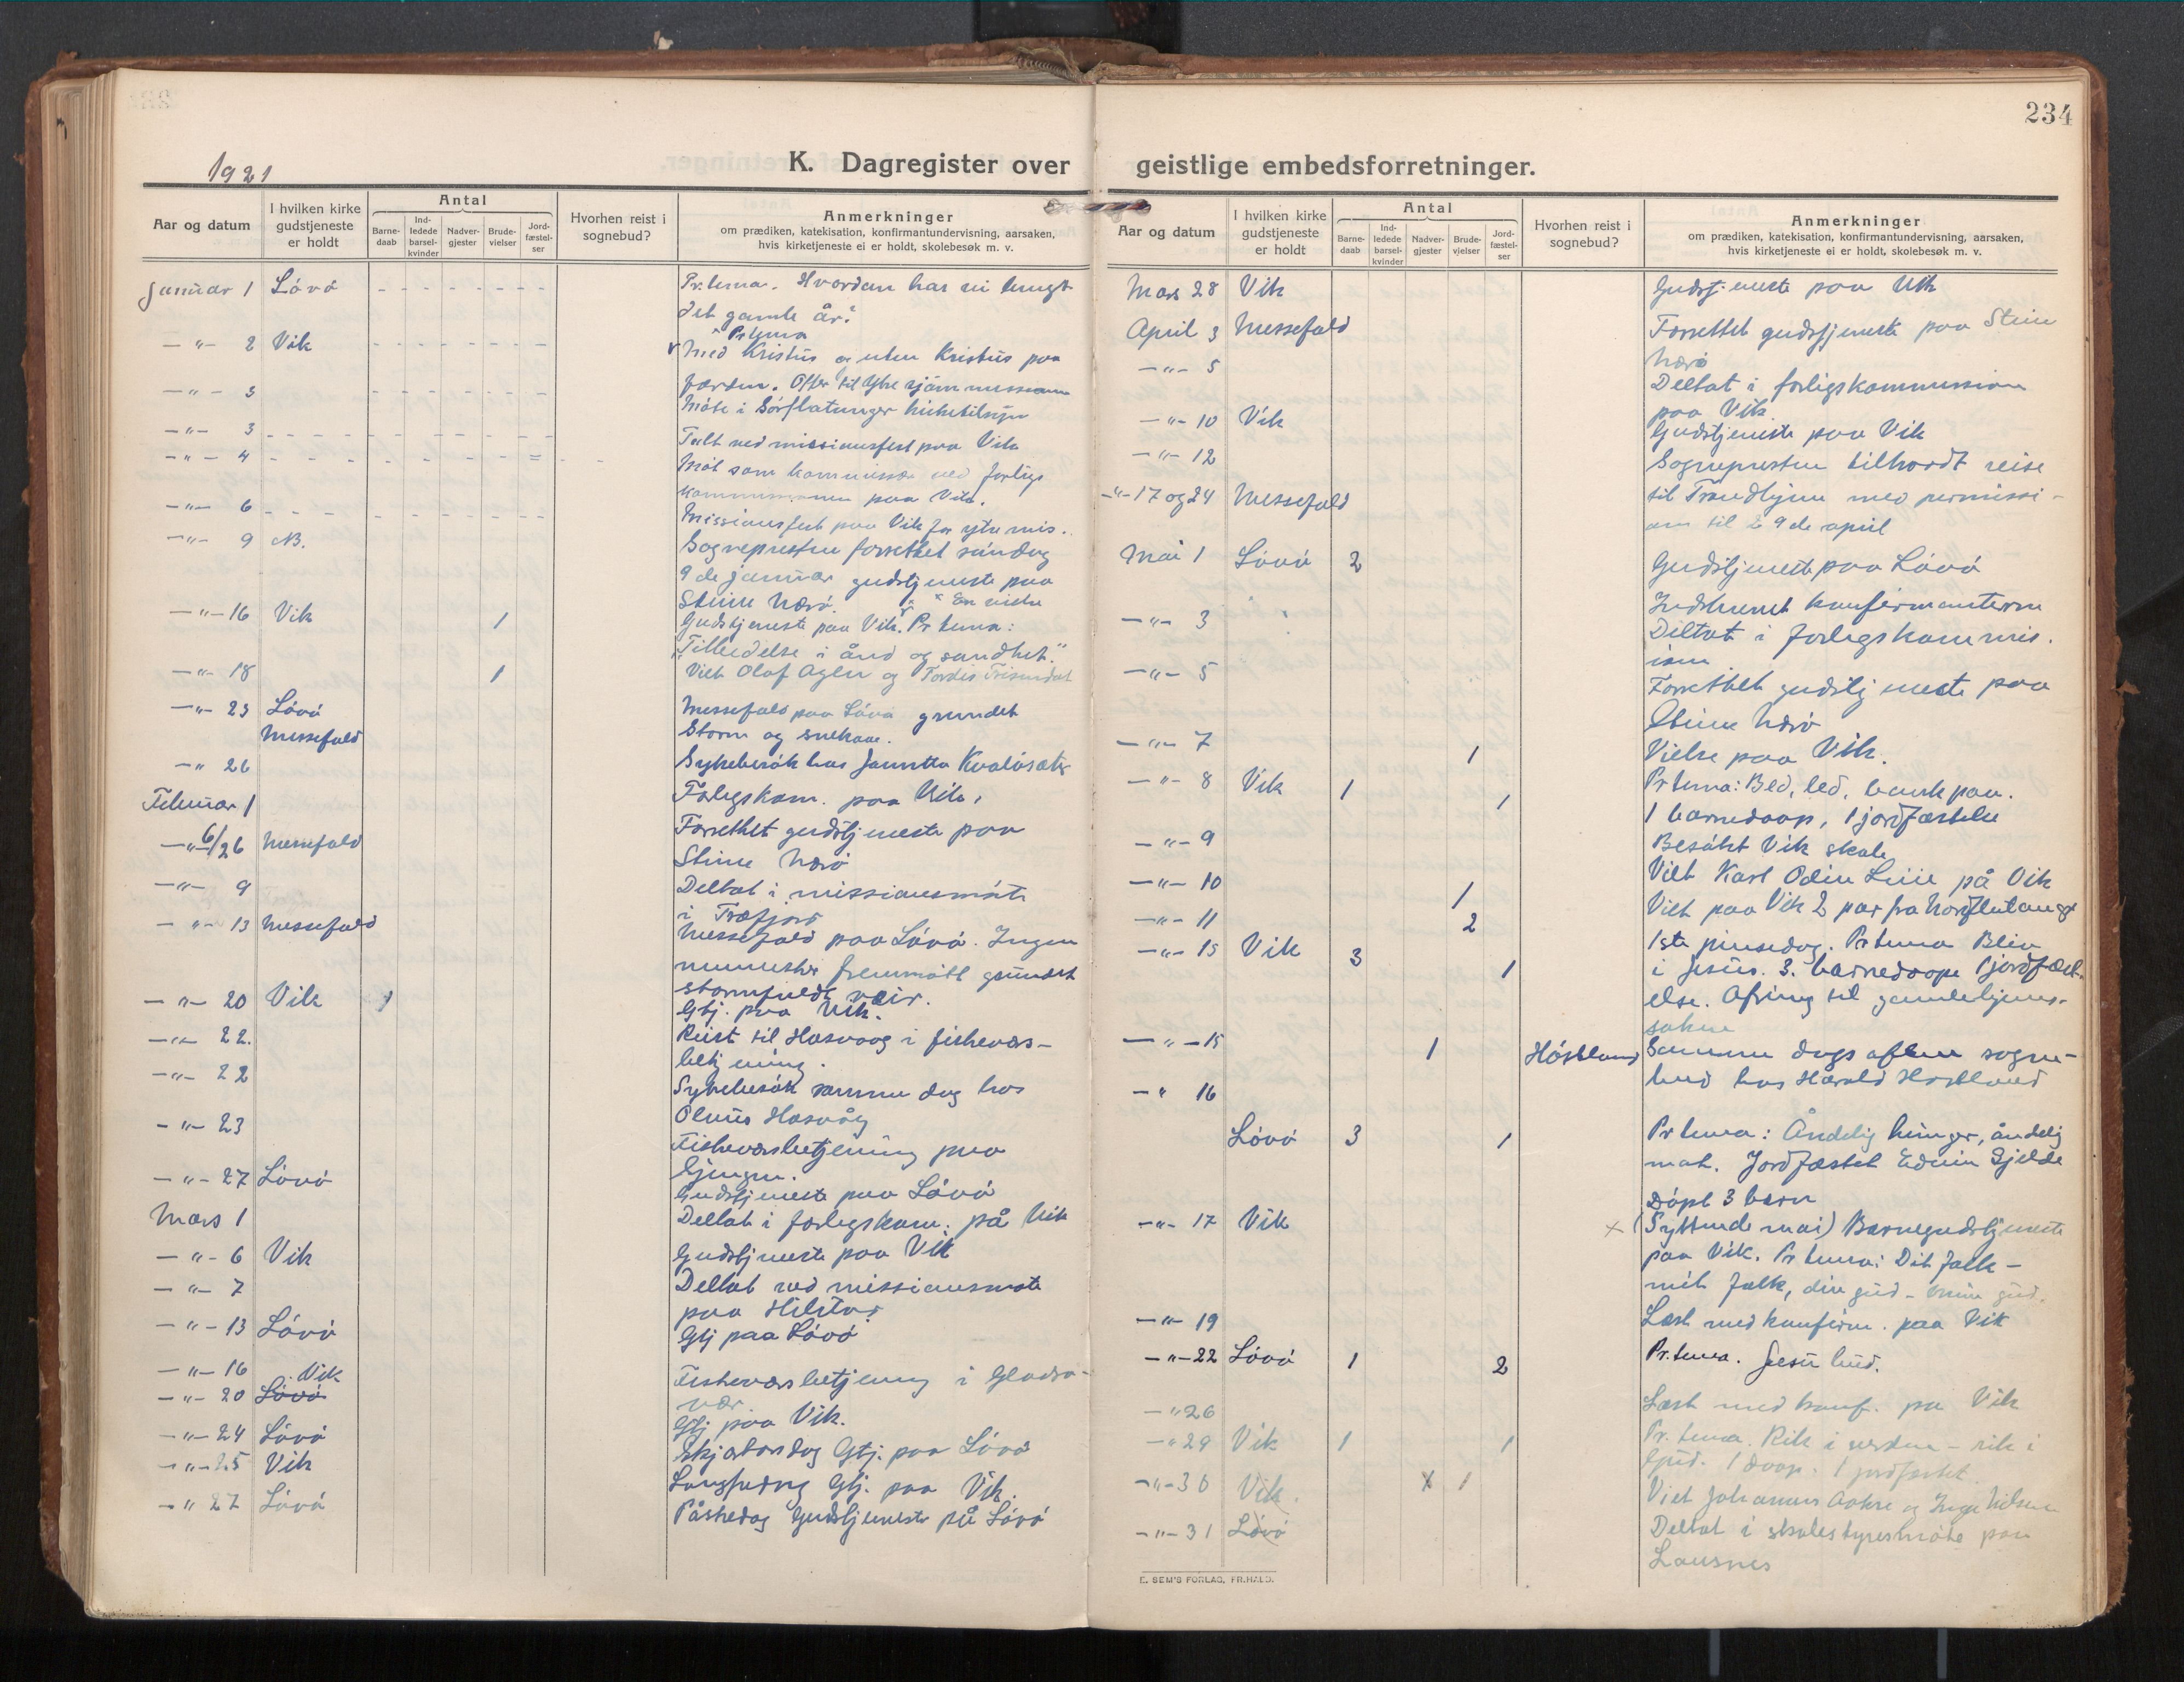 234
1921
K. Dagregister over
Aar og datum
I hvilken kirke gudstjeneste er holdt
Antal
Barne-daab
Ind-ledede barsel-kvinder
Nadver-gjester
Brude-vielser
Jord-fæstel-ser
Hvorhen reist i sognebud?
Anmerkninger
om prædiken, katekisation, konfirmantundervisning, aarsaken,
hvis kirketjeneste ei er holdt, skolebesøk m. v.
Januar 1 Lövö Pr. tema. Hvordan har vi brugt
det gamle år?
Pr tema
—"— 2 Vik Med Kristus og uten Kristus paa
færden. Offer til ytre sjömmission
—"— 3 Möte i Sörflatanger kirketilsyn
—"— 3 Talt ved missionsfest paa Vik
—"— 4 Möt som kommissær ved forligs
kommissionen paa Vik.
—"— 6 Missionsfest paa Vik for ytre mis.
—"— 9 NB. Sognepresten forrettet söndag
9 de januar gudstjeneste paa
Steine Nærö.
—"— 16 Vik 1 Gudstjeneste paa Vik. Pr tema:
"Tilbedelse i ånd og sandhet."
—"— 18 1 Viet Olaf Aglen og Tordis
—"— 23 Lövö Messefald Messefald paa Lövö grundet
Storm og snekave.
—"— 26 Sykebesök hos Kvalösæter
Februar 1 Forligskom. paa Vik.
—"— 6/26 Messefald Forrettet gudstjeneste paa
Steine Nærö
—"— 9 Deltat i missionsmöte
i
—"— 13 Messefald Messefald paa Lövö. Ingen
mennesker fremmött grundet
stormfuldt veir.
—"— 20 Vik 1 Gtj. paa Vik.
—"— 22. Reist til Hasvaag i fiskevær-
betjening.
—"— 22 Sykebesök samme dag hos
Oluus Hasvåg
—"— 23 Fiskeværsbetjening paa
Gjingen.
—"— 27 Lövö Gudstjeneste paa Lövö
Mars 1 Deltat i forligskom. på Vik
—"— 6 Vik Gudstjeneste paa Vik
—"— 7 Deltat ved missionsmöte
paa
—"— 13 Lövö Gtj paa Lövö
—"— 16 Fiskeværsbetjening i Gladsö-
vær
—"— 20 Lövö Vik Gtj paa Vik.
—"— 24 Lövö Skjærtorsdag Gtj. paa Lövö
—"— 25 Vik Langfredag Gtj. paa Vik.
—"— 27 Lövö Påskedag Gudstjeneste på Lövö
geistlige embedsforretninger.
Aar og datum
I hvilken kirke gudstjeneste er holdt
Antal
Barne-daab
Ind-ledede barsel-kvinder
Nadver-gjester
Brude-vjelser
Jord-fæstel-ser
Hvorhen reist i sognebud?
Anmerkninger
om prædiken, katekisation, konfirmantundervisning, aarsaken,
hvis kirketjeneste ei er holdt, skolebesøk m. v.
Mars 28 Vik Gudstjeneste paa Vik
April 3 Messefald Forrettet gudstjeneste paa Steine
Nærö
—"— 5 Deltat i forligskommission
paa Vik.
—"— 10 Vik Gudstjeneste paa Vik
—"— 12 Sognepresten tiltraadt reise
—"— 17 og 24 Messefald til Trondhjem med permissi-
on til 29 de april
Mai 1 Lövö 2 Gudstjeneste paa Lövö
Indskrevet konfirmanterne
—"— 3 Deltat i forligskommis.
ion
—"— 5 Forrettet gudstjeneste paa
Steine Nærö
—"— 7 1 Vielse paa Vik.
—"— 8 Vik 1 1 Pr tema: Bed, led, bank paa.
1 barnedaap, 1 jordfæstelse
—"— 9 Besökt Vik skole
—"— 10 1 Viet Karl Odin på Vik
—"— 11 2 Viet paa Vik 2 par fra Nordflatanger
—"— 15 Vik 3 1 1ste pinsedag. Pr tema Bliv
i Jesus. 3. barnedaape 1 jordfæst-
else. Ofring til gamlehjems-
saken
—"— 15 1 Höstland Samme dags aften sogne-
bud hos Harald Höstland
—" 16
Lövö 3 1 Pr tema: Åndelig hunger, åndelig
mat. Jordfæstet Edvin Gjelde
Döpt 3 barn
—"— 17 Vik × (Syttende mai) Barnegudstjeneste
paa Vik. Pr tema: Dit folk —
mit folk, din gud — min gud.
—"— 19 Læst med konfirm. paa Vik
—"— 22 Lövö 1 2 Pr. tema. Jesu bud.
—"26 Læst med konf. pa Vik
—"29 Vik 1 1 Pr. tema. Rik i verden — rik i
Gud. 1 daap. 1 jordfæstet.
—"— 30 Vik. x 1 Viet Johannes Aakre og Inga Nilsen
—"— 31 Lövö Deltat i skolestyresmöte paa
Lausnes
E. SEM'S FORLAG, FR.HALD.